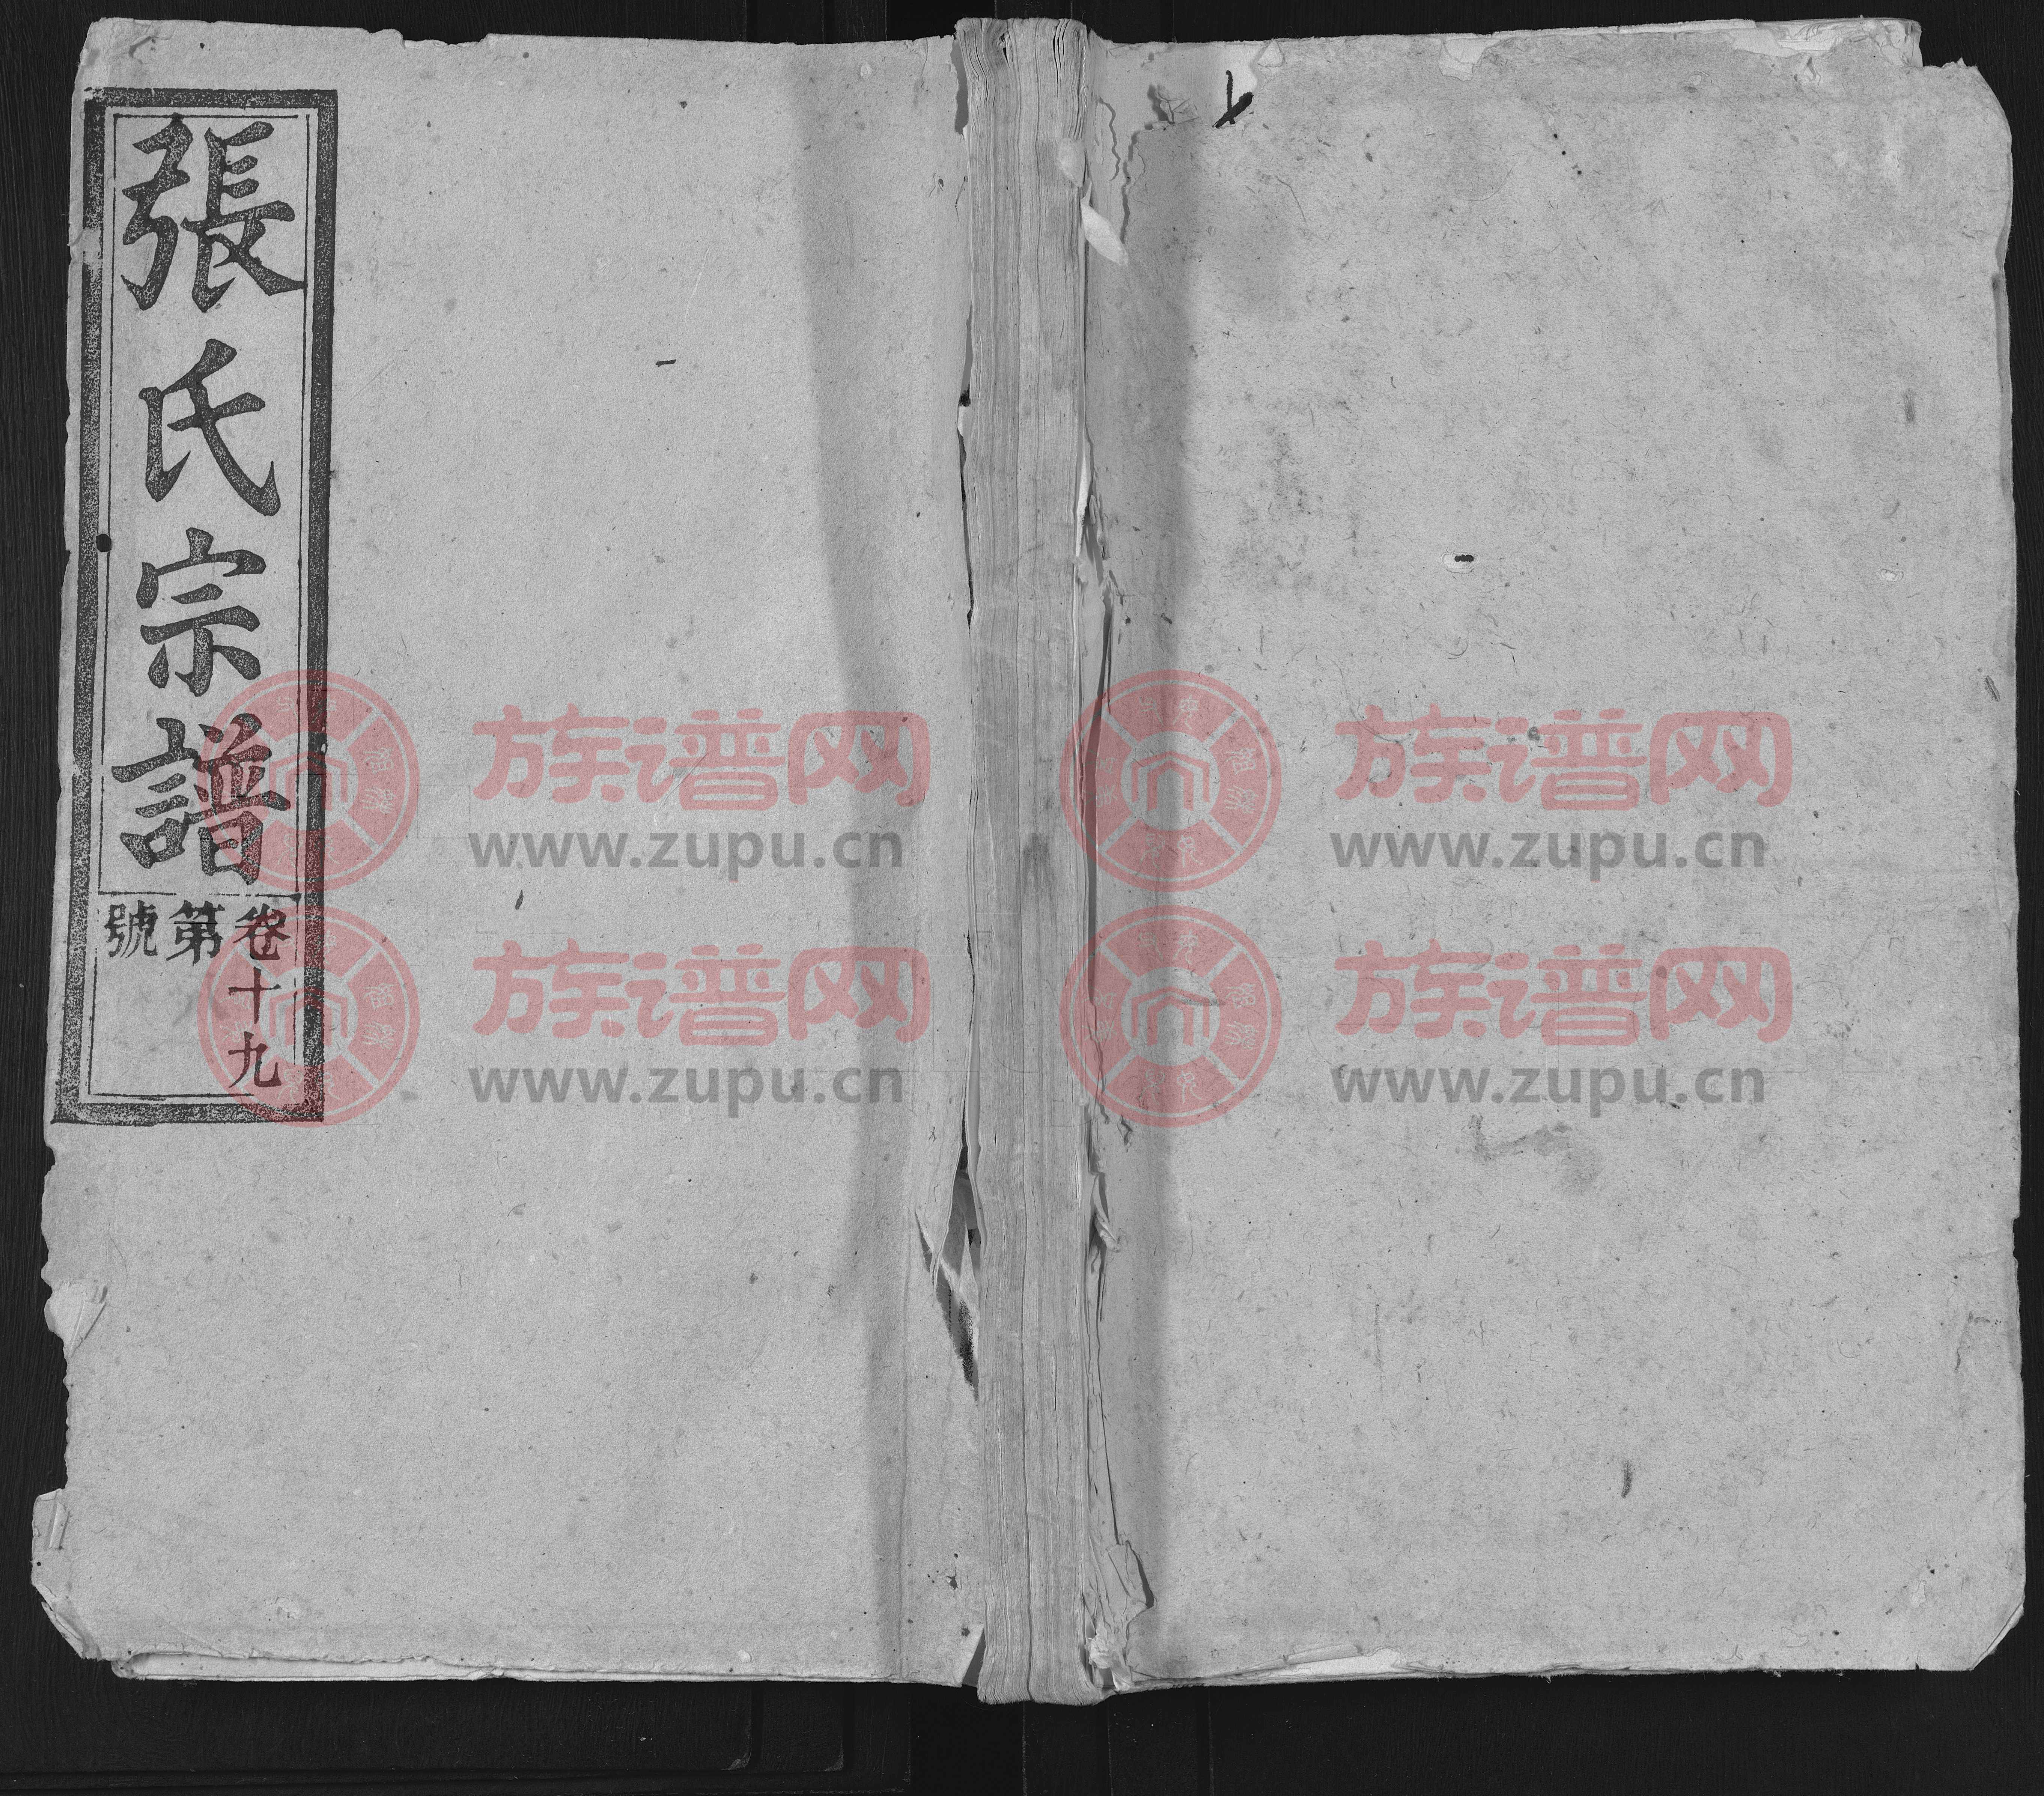 張氏宗譜
卷十九
第
號
族谱网
www.zupu.cn
族谱网
www.zupu.cn
族谱网
www.zupu.cn
族谱网
www.zupu.cn